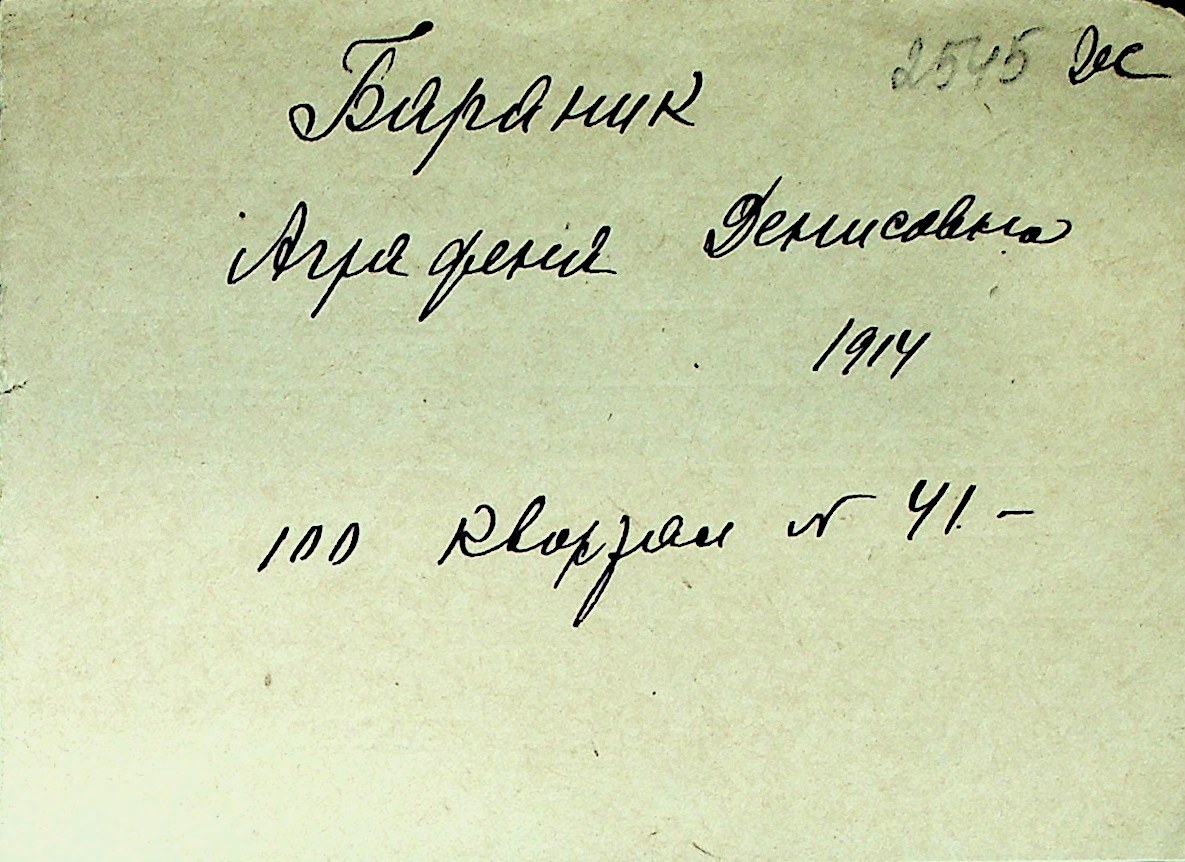 2545 Дес
Бараник
Аграфена Денисовна
1914
100 Квартал № 41. -